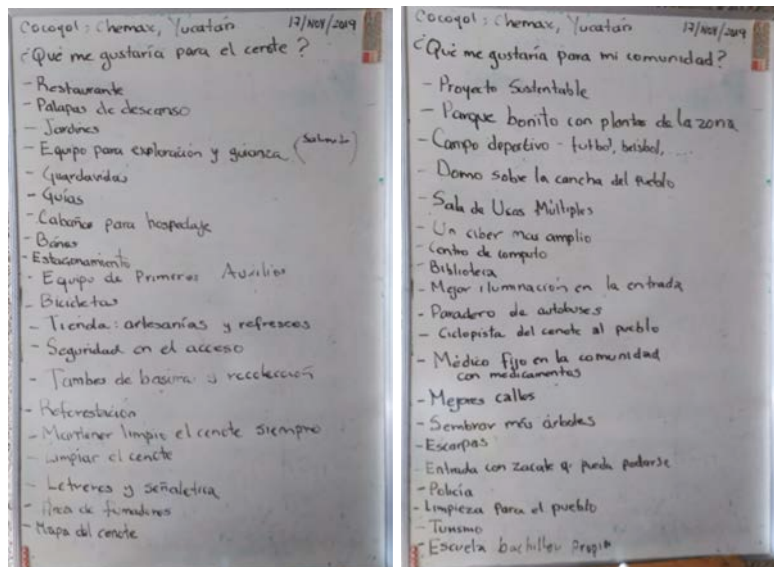 Cocoyol; Chemax, Yucatán 17/NOV/2019
¿Qué me gustaría para el cenote?
- Restaurante
- Palapas de descanso
- Jardines
- Equipo para exploración y guianza
- Guardavidas
- Guías
- Cabañas para hospedaje
- Baños
- Estacionamiento
- Equipo de Primeros Auxilios
- Bicicletas
- Tienda: artesanías y refrescos
- Seguridad en el acceso
- Tambos de basura y recolección
- Reforestación
- Mantener limpio el cenote siempre
- Limpiar el cenote
- Letreros y señaletica
- Área de fumadores
- Mapa del cenote
Cocoyol; Chemax, Yucatán 17/NOV/2019
¿Qué me gustaría para mi comunidad?
- Proyecto Sustentable
- Parque bonito con plantas de la zona
- Campo deportivo - futbol, beisbol, ....
- Domo sobre la cancha del pueblo
- Sala de Usos Múltiples
- Un ciber mas amplio
- Centro de computo
- Biblioteca
- Mejor iluminación en la entrada
- Paradero de autobuses
- Ciclopista del cenote al pueblo
- Médico fijo en la comunidad
con medicamentos
- Mejores calles
- Sembrar más árboles
- Escarpas
- Entrada con zacate q. pueda podarse
- Policía
- Limpieza para el pueblo
- Turismo
- Escuela bachiller propia